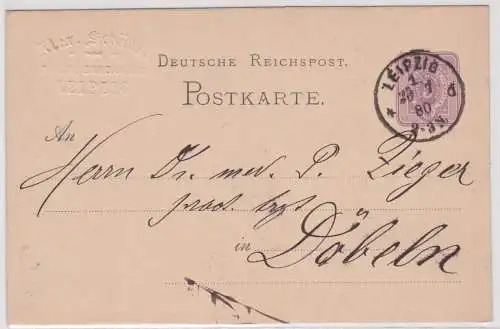 LEIPZIG
DEUTSCHE REICHSPOST.
POSTKARTE.
LEIPZIG
1
80
An
Herrn Dr. med. P. Zieger
pract. Arzt
in Döbeln